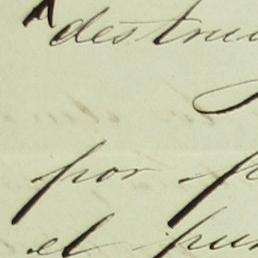 destru
por p
el pun